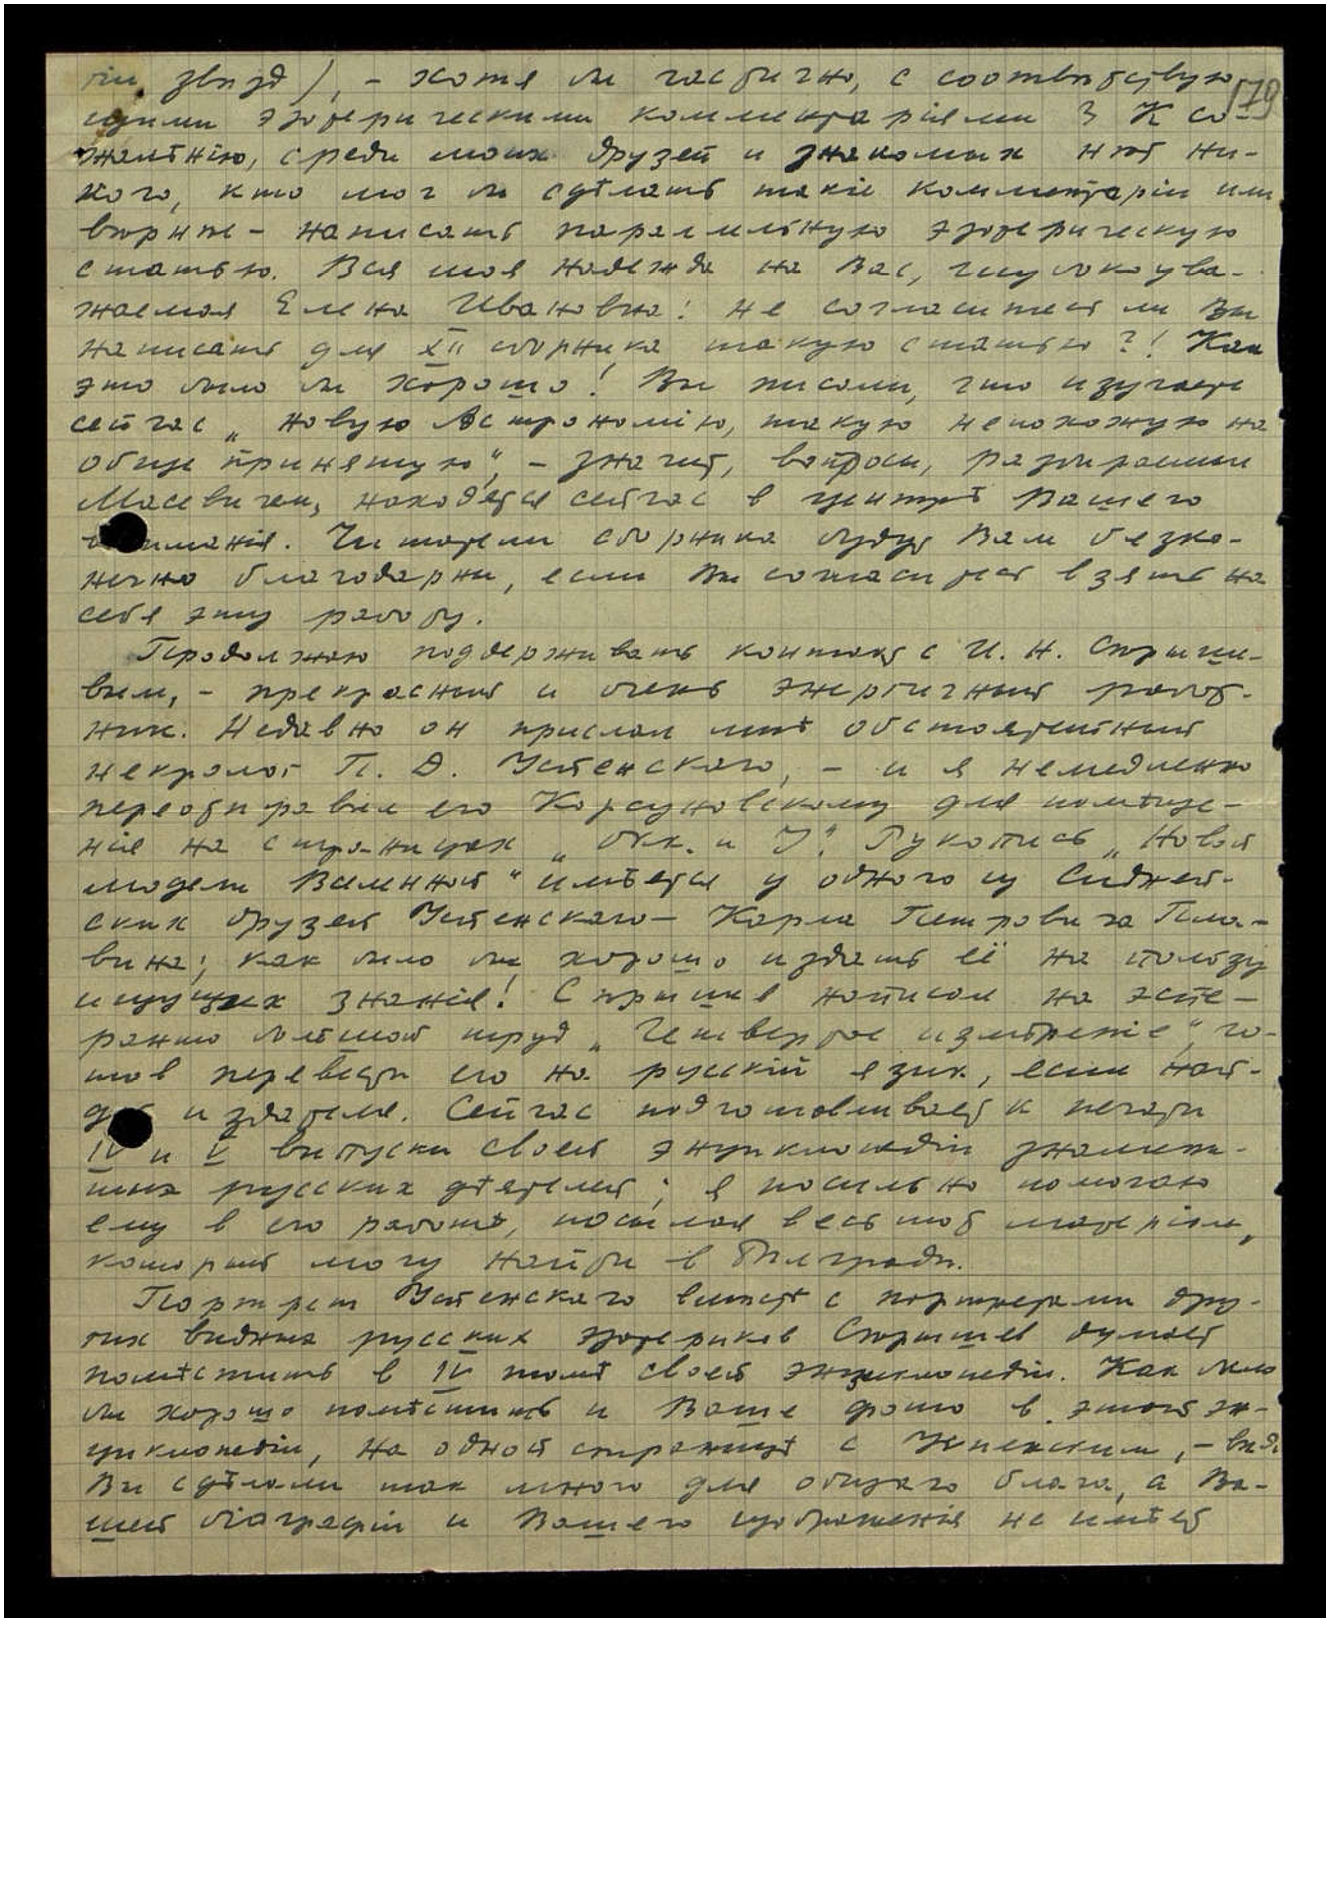 гіи звѣзд), – хотя бы частично, с соотвѣтствую-
179
щими эзотерическими комментаріями? К со-
жалѣнію, среди моих друзей и знакомых нѣт ни-
кого, кто мог бы сдѣлать такіе комментаріи или
вѣрнѣе – написать параллельную эзотерическую
статью. Вся моя надежда на Вас, глубокоува-
жаемая Елена Ивановна: не согласитесь ли Вы
написать для XII сборника такую статью?! Как
это было бы хорошо! Вы писали, что изучаете
сейчас „новую Астрономію, такую непохожую на
общепринятую“, – значит, вопросы, разбираемые
Масевичем, находятся сейчас в центрѣ Вашего
вниманія. Читатели сборника будут Вам безко-
нечно благодарны, если Вы согласитесь взять на
себя эту работу.
Продолжаю поддерживать контакт с И. Н. Спрыше-
вым, – прекрасный и очень энергичный работ-
ник. Недавно он прислал мнѣ обстоятельный
некролог П. Д. Успенскаго, – и я немедленно
переотправил его Корсуновскому для помѣще-
нія на страницах „Окк. и І.“ Рукопись „Новой
модели Вселенной“ имѣется у одного из Сидней-
ских друзей Успенскаго – Карла Петровича Пла-
вина; как было бы хорошо издать её на пользу
ищущих знанія! Спрышев написал на эспе-
ранто большой труд „Четвертое измѣреніе“, го-
тов перевести его на русскій язык, если най-
дет издателя. Сейчас подготавливает к печати
IV и V выпуски своей энциклопедіи знамени-
тых русских дѣятелей; я посильно помогаю
ему в его работѣ, посылая весь тот матеріал,
который могу найти в Бѣлградѣ.
Портрет Успенскаго вмѣстѣ с портретами дру-
гих видных русских эзотериков Спрышев думает
помѣстить в IV томѣ своей энциклопедіи. Как было
бы хорошо помѣстить и Ваше фото в этой эн-
циклопедіи, на одной страницѣ с Успенским, – вѣдь
Вы сдѣлали так много для общаго блага, а Ва-
шей біографіи и Вашего изображенія не имѣет